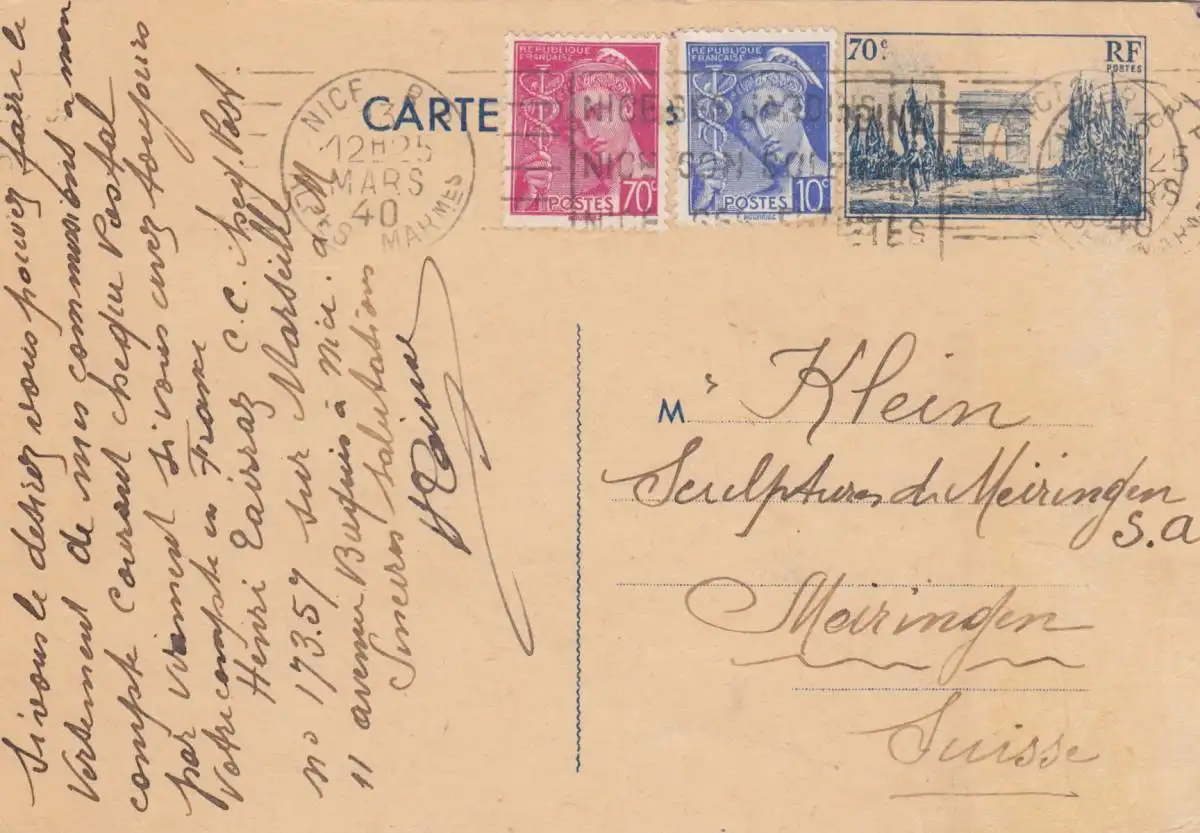 CARTE
REPUBLIQUE
FRANÇAISE
70c
POSTES
REPUBLIQUE
FRANÇAISE
POSTES
10c
70c.
RF
POSTES
NICE
12H25
MARS
40
MARITIMES
NICE SES JARDINS
NICE SON SOLEIL
NICE SES FETES
25
40
M
rs Klein
Sculptures de Meiringen
S.A
Meiringen
Suisse
Si vous le desirez vous pouvez faire le
Versement de mes commissions a mon
compte courant cheque Postal
par virement si vous avez toujours
Votre compte en France
Henri C.C. cheq. Post.
n° 173.59 sur Marseille
11 avenue à Nice. a. M
Sinceres salutations